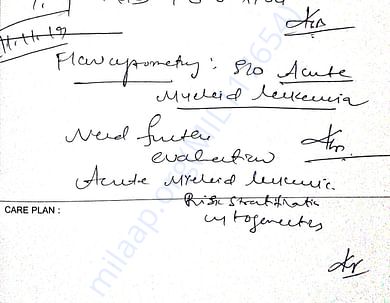 11.11.19
Flowcytometry : S/o Acute
Myeloid leukemia
Need further
evaluation
Acute Myeloid leukemia
Risk stratification
CARE PLAN :
cytogenetics